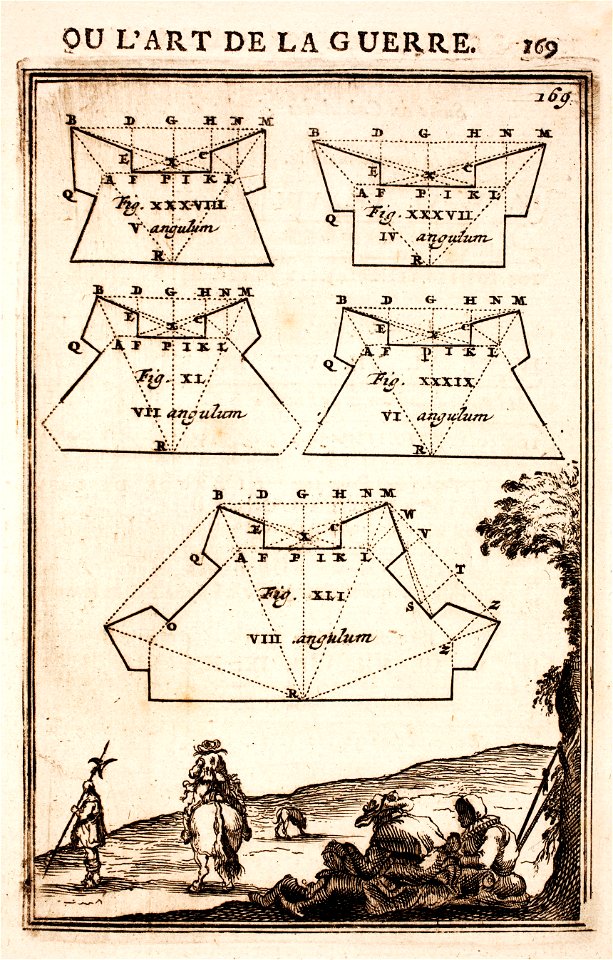 OU L'ART DE LA GUERRE. 169
169
B D G H N M
E X C
A F P I K L
Q
Fig. XXXVIII
V angulum
R
B D G H N M
E X C
A F P I K L
Q
Fig. XXXVII
IV angulum
R
B D G H N M
E X C
Q A F P I K L
Fig. XL
VII angulum
R
B D G H N M
E X C
A F P I K L
Q
Fig. XXXIX
VI angulum
R
B D G H N M
W
E X C V
Q A F P I K L
T
Fig. XLI
S Z
O
VIII angulum
Z
R